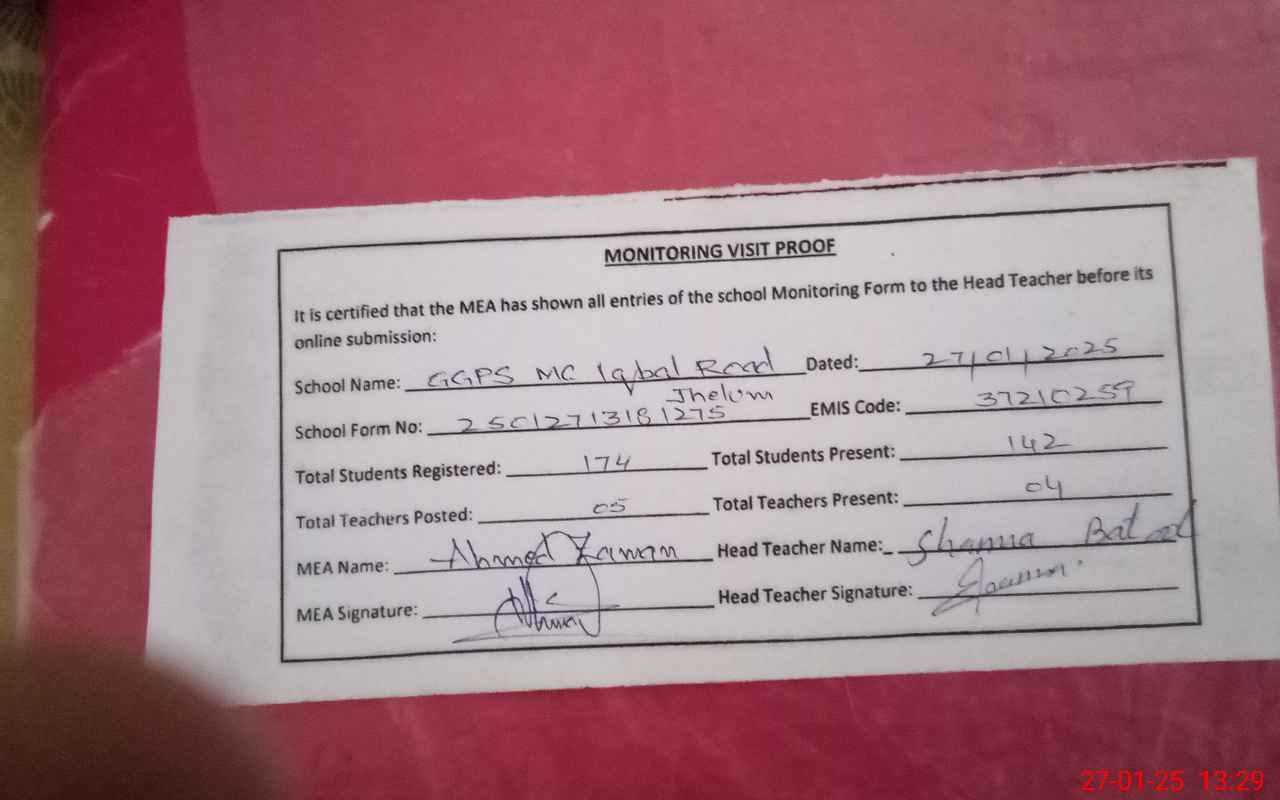 MONITORING VISIT PROOF
It is certified that the MEA has shown all entries of the school Monitoring Form to the Head Teacher before its
online submission:
School Name: GGPS MC Iqbal Road Jhelum Dated: 27/01/2025
School Form No: 2501271318 1275 EMIS Code: 37210259
Total Students Registered: 174 Total Students Present: 142
Total Teachers Posted: 05 Total Teachers Present: 04
MEA Name: Ahmed Zaman Head Teacher Name: Shamia Batool
MEA Signature: Head Teacher Signature:
27-01-25 13:29